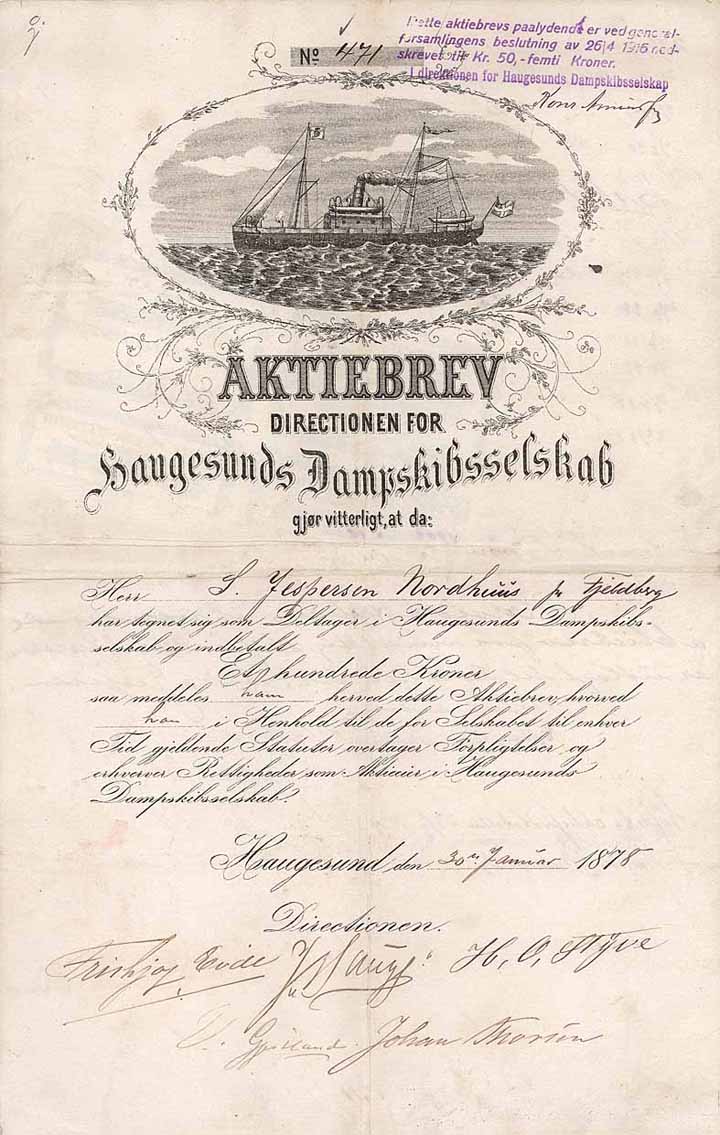 Nº 471
Dette aktiebrevs paalydende er ved general-
forsamlingens beslutning av 26/4 1916 ned-
skrevet til Kr. 50,- femti Kroner.
I direktionen for Haugesunds Dampskibsselskap
S
AKTIEBREV
DIRECTIONEN FOR
Haugesunds Dampskibsselskab
gjør vitterligt, at da:
Herr S. Jespersen Nordhuus pr Fjeldberg
har tegnet sig som Deltager i Haugesunds Dampskibs-
selskab og indbetalt
Et hundrede Kroner
saa meddeles ham herved dette Aktiebrev, hvorved
han i Henhold til de for Selskabet til enhver
Tid gjeldende Statuter overtager Forpligtelser og
erhverver Rettigheder som Aktieeier i Haugesunds
Dampskibsselskab.
Haugesund den 30te Januar 1878
Directionen.
H. O. Styve
Johan Thorsen